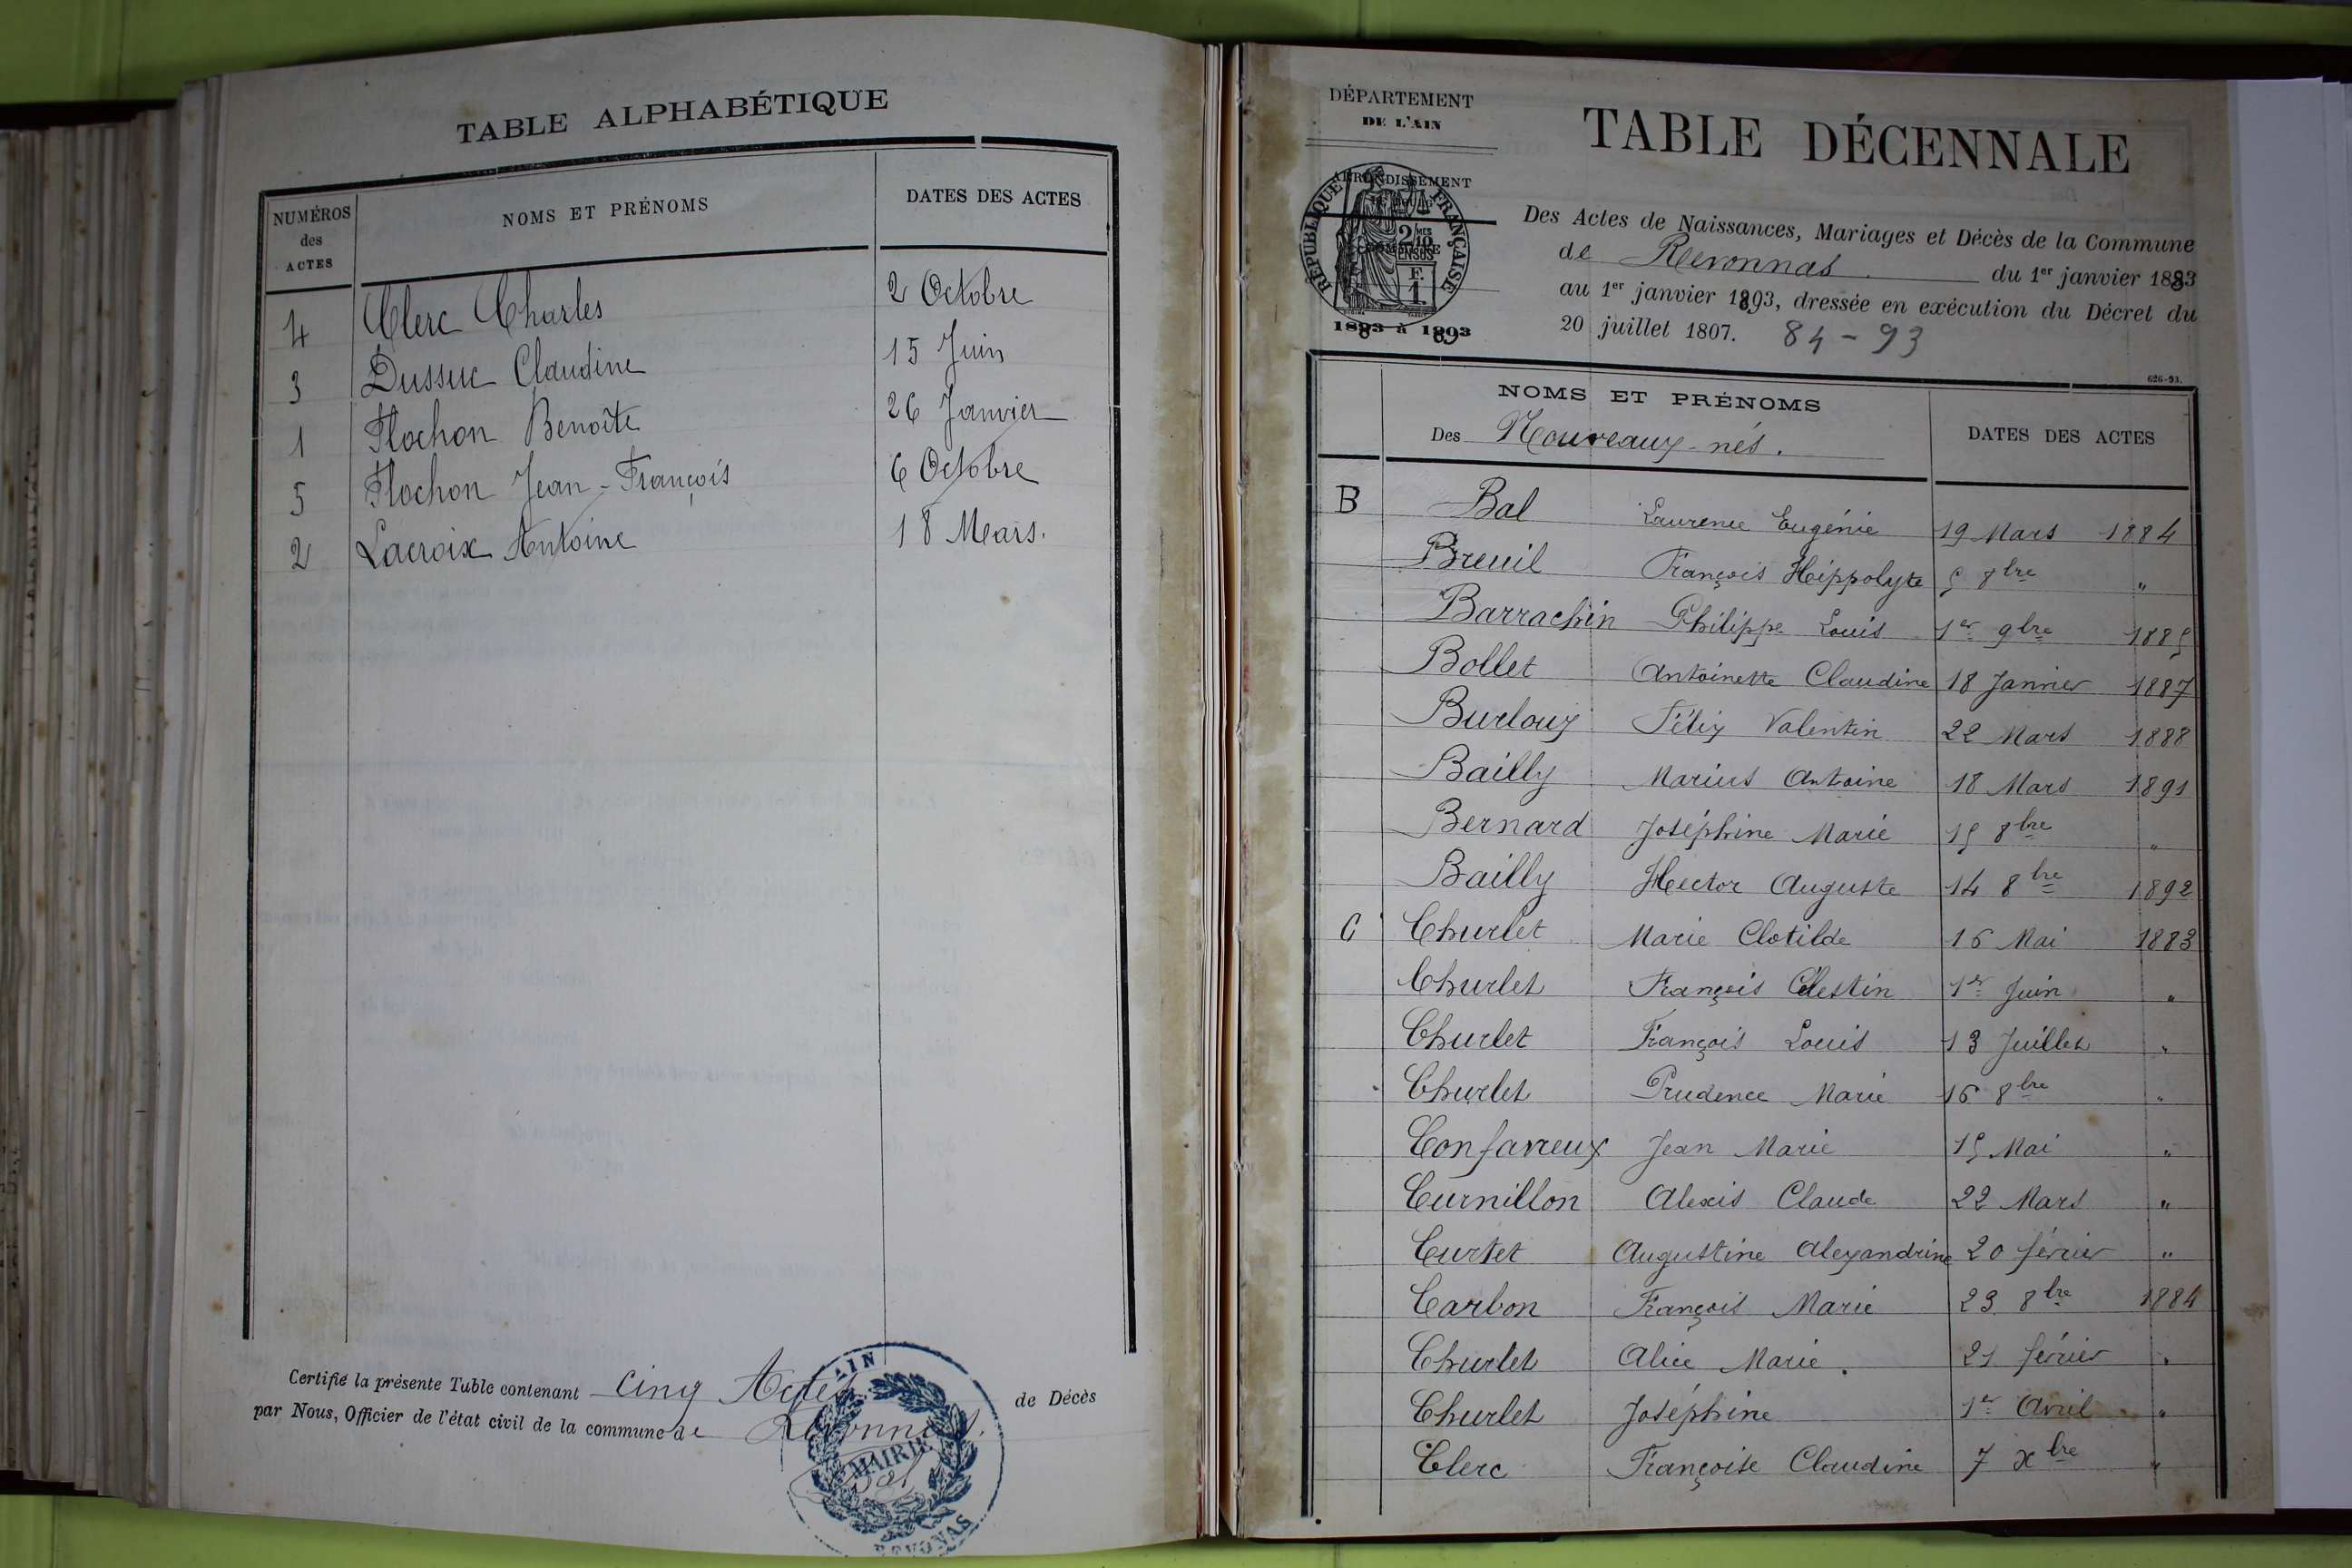 TABLE ALPHABÉTIQUE
NUMÉROS des ACTES NOMS ET PRÉNOMS DATES DES ACTES
4 Clerc Charles 2 Octobre
3 Dussuc Claudine 15 Juin
1 Flochon Benoîte 26 Janvier
5 Flochon Jean-François 6 Octobre
2 Lacroix Antoine 18 Mars.
Certifié la présente Table contenant Cinq Actes de Décès
par Nous, Officier de l'état civil de la commune de Revonnas.
AIN
MAIRIE
REVONNAS
DÉPARTEMENT
DE L'AIN
ARRONDISSEMENT
RÉPUBLIQUE FRANÇAISE
2/10 EN SUS
F. 1.
1883 à 1893
TABLE DÉCENNALE
Des Actes de Naissances, Mariages et Décès de la Commune
de Revonnas du 1er janvier 1883
au 1er janvier 1893, dressée en exécution du Décret du
20 juillet 1807. 84-93
626-93.
NOMS ET PRÉNOMS
Des Nouveaux-nés. DATES DES ACTES
B Bal Laurence Eugénie 19 Mars 1884
Breuil François Hippolyte 5 8bre "
Barrachin Philippe Louis 1er 9bre 1885
Bollet Antoinette Claudine 18 Janvier 1887
Burloux Félix Valentin 22 Mars 1888
Bailly Marius Antoine 18 Mars 1891
Bernard Joséphine Marie 15 8bre "
Bailly Hector Auguste 14 8bre 1892
C Churlet Marie Clotilde 16 Mai 1883
Churlet François Célestin 1er Juin "
Churlet François Louis 13 Juillet "
Churlet Prudence Marie 16 8bre "
Confavreux Jean Marie 15 Mai "
Curnillon Alexis Claude 22 Mars "
Curtet Augustine Alexandrine 20 février "
Carbon François Marie 23 8bre 1884
Churlet Alice Marie. 21 février "
Churlet Joséphine 1er Avril "
Clerc Françoise Claudine 7 xbre "